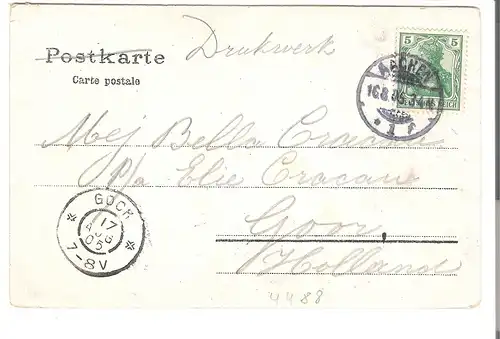 Postkarte Drukwerk
Carte postale
5 5
REICH
AACHEN
16.8.05.
1
Mej Bella Cracau
p/a Elie Cracau
Goor
Holland
GOOR
17
AUG
05
7-8V
4488